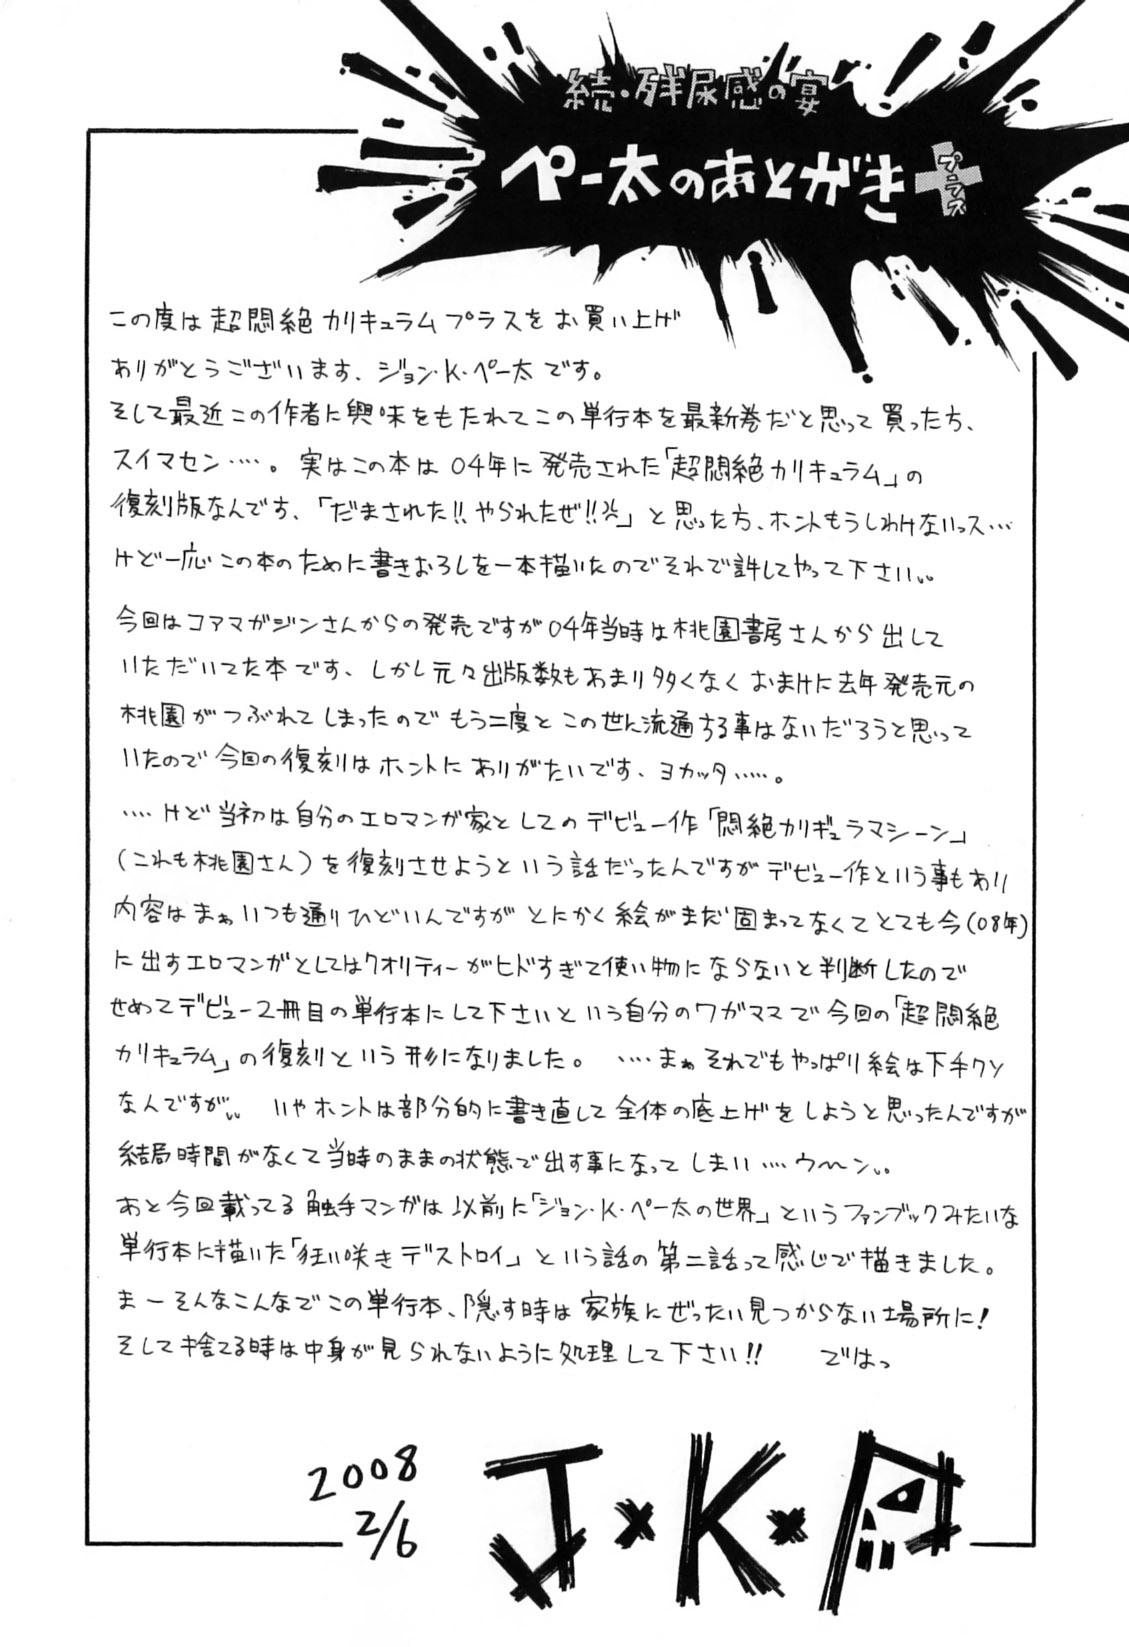 続・残尿感の宴
ペー太のあとがき
プラス
この度は超悶絶カリキュラムプラスをお買い上げ
ありがとうございます、ジョン・K・ペー太です。
そして最近この作者に興味をもたれてこの単行本を最新巻だと思って買った方、
スイマセン‥‥。実はこの本は04年に発売された「超悶絶カリキュラム」の
復刻版なんです、「だまされた!!やられたぜ!!」と思った方、ホントもうしわけないっス…
けど一応この本のために書きおろしを一本描いたのでそれで許してやって下さい‥
今回はコアマガジンさんからの発売ですが04年当時は桃園書房さんから出して
いただいてた本です、しかし元々出版数もあまり多くなくおまけに去年発売元の
桃園がつぶれてしまったのでもう二度とこの世に流通する事はないだろうと思って
いたので今回の復刻はホントにありがたいです、ヨカッタ‥‥。
‥‥けど当初は自分のエロマンガ家としてのデビュー作「悶絶カリギュラマシーン」
(これも桃園さん)を復刻させようという話だったんですがデビュー作という事もあり
内容はまぁいつも通りひどいんですがとにかく絵がまだ固まってなくてとても今(08年)
に出すエロマンガとしてはクオリティーがヒドすぎて使い物にならないと判断したので
せめてデビュー2冊目の単行本にして下さいという自分のワガママで今回の「超悶絶
カリキュラム」の復刻という形になりました。‥‥まぁそれでもやっぱり絵は下手クソ
なんですが‥ いやホントは部分的に書き直して全体の底上げをしようと思ったんですが
結局時間がなくて当時のままの状態で出す事になってしまい‥‥ウ〜ン‥
あと今回載ってる触手マンガは以前に「ジョン・K・ペー太の世界」というファンブックみたいな
単行本に描いた「狂い咲きデストロイ」という話の第二話って感じで描きました。
まーそんなこんなでこの単行本、隠す時は家族にぜったい見つからない場所に!
そして捨てる時は中身が見られないように処理して下さい!! ではっ
2008
2/6
J×K×P